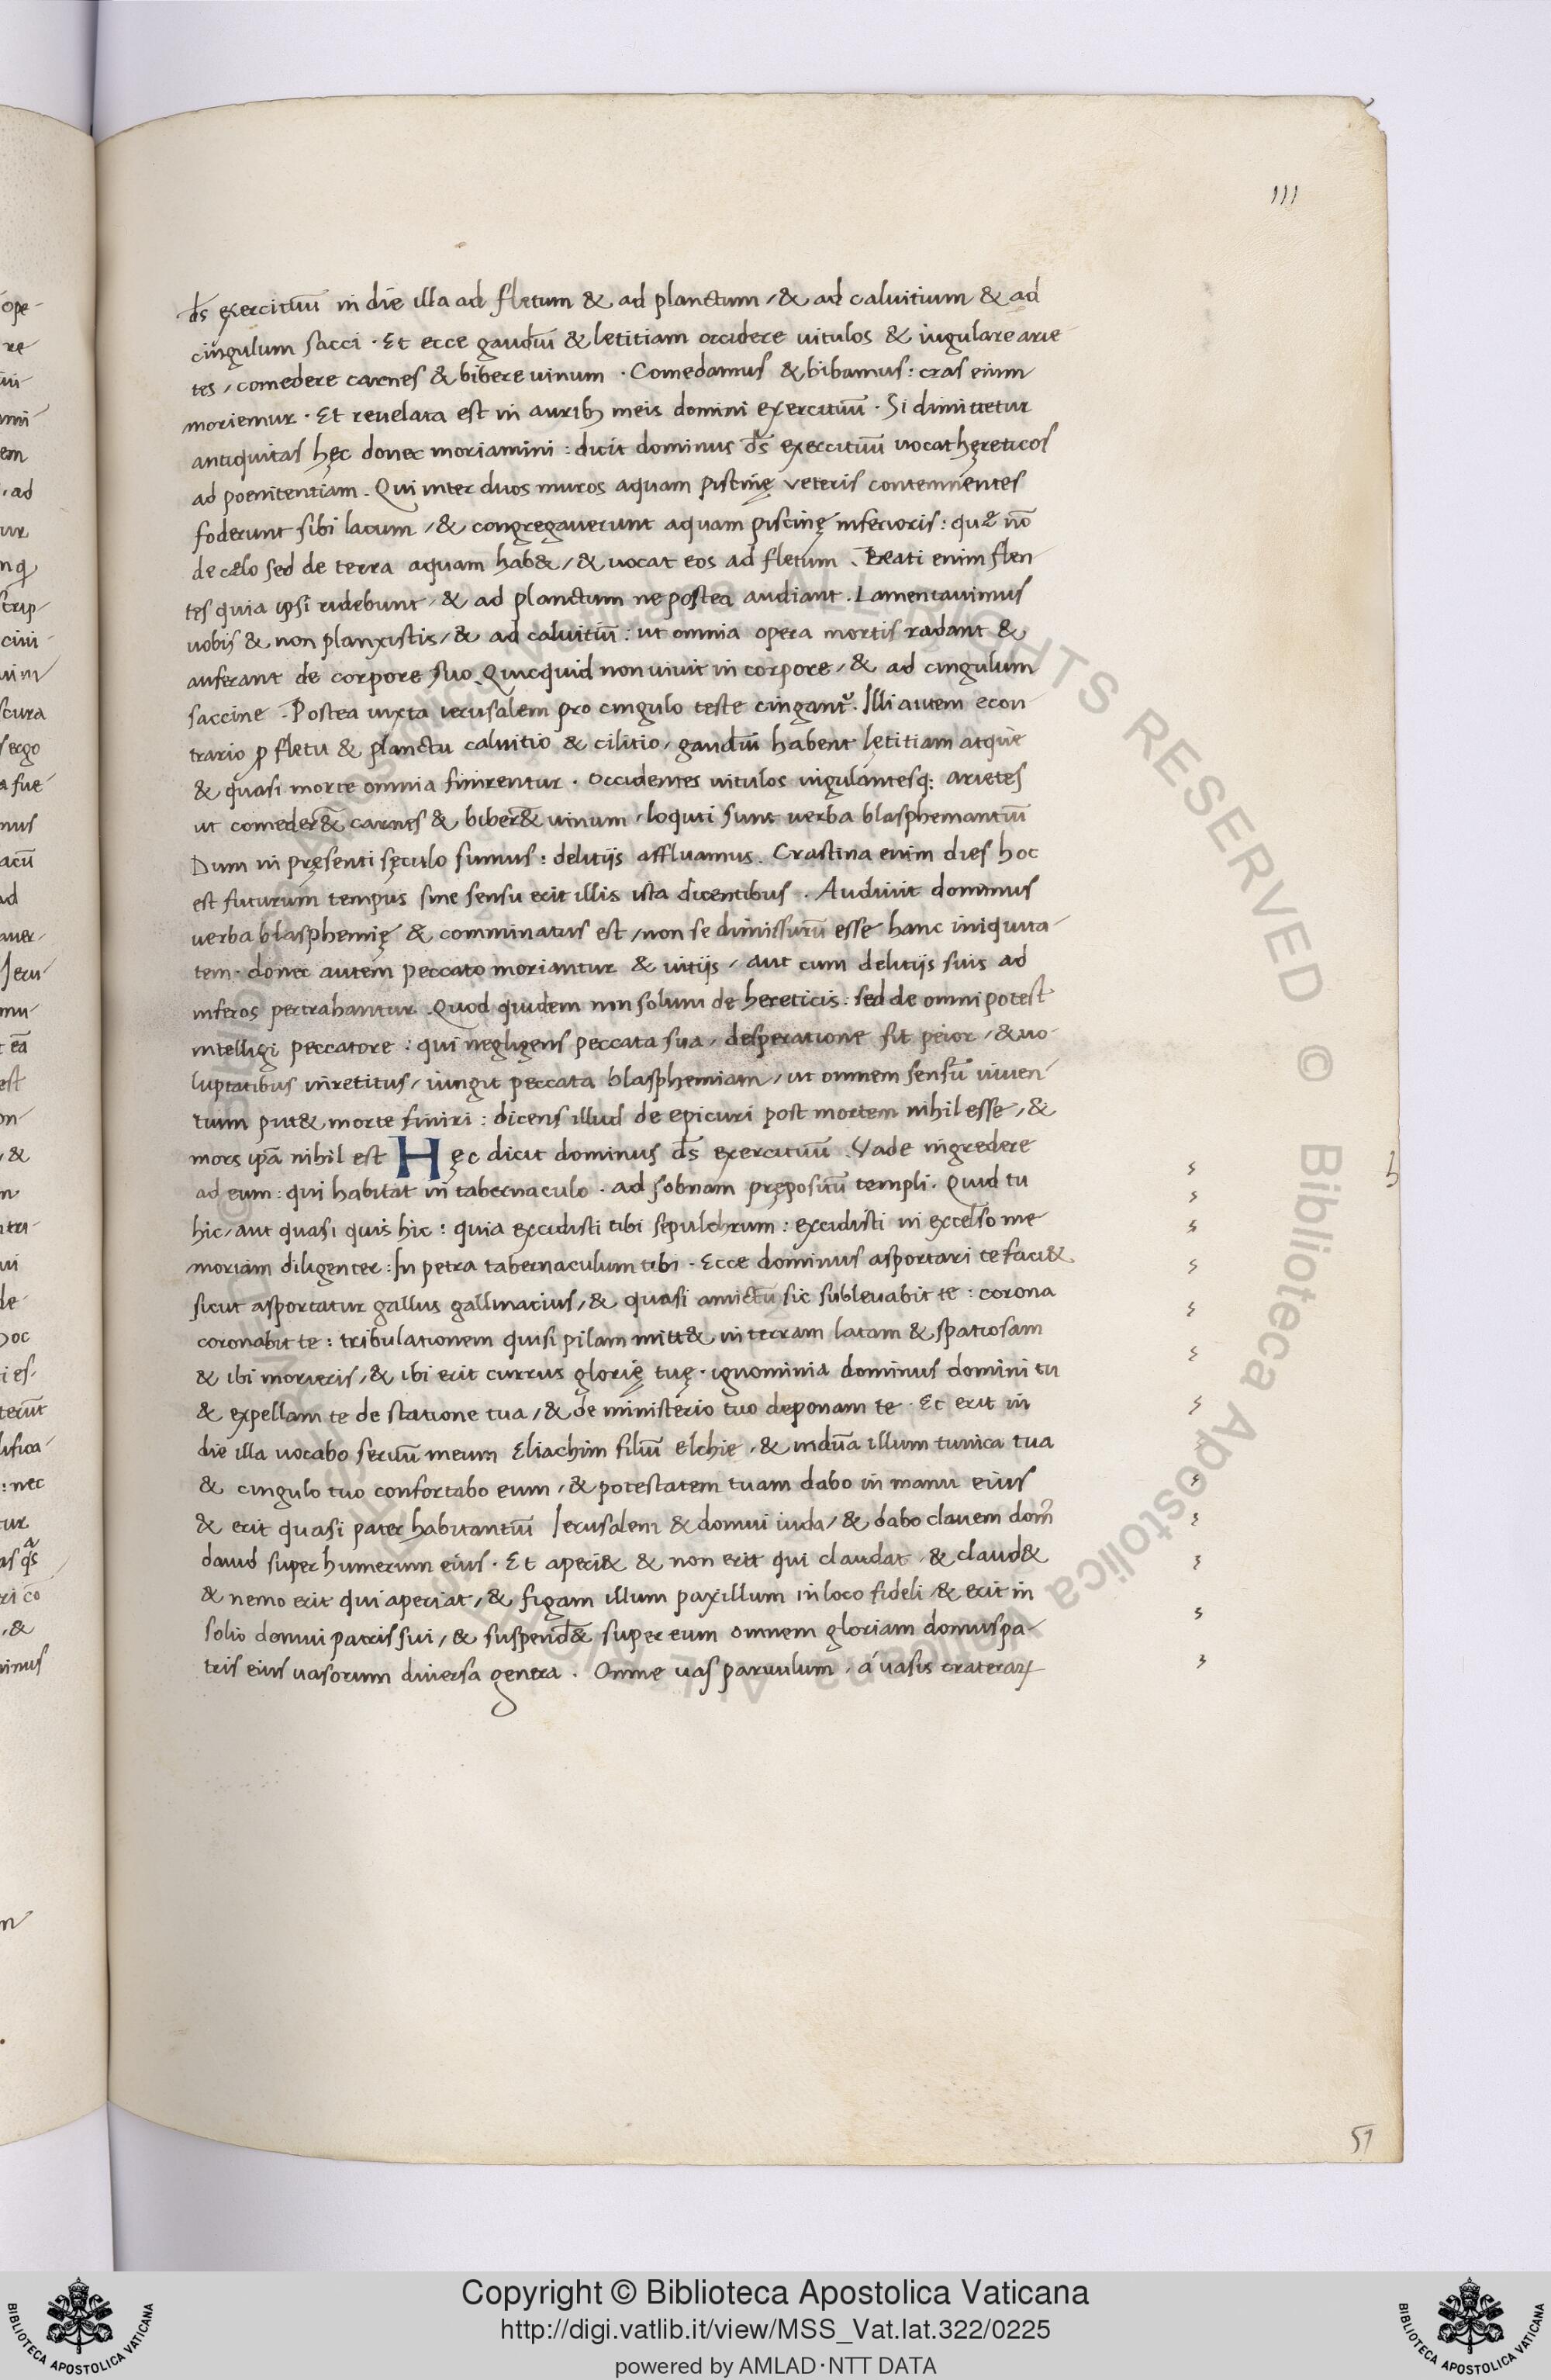 111
d̄s exercituū in die illa ad fletum & ad planctum, & ad caluitium & ad
cingulum sacci. Et ecce gaudiū & letitiam occidere uitulos & iugulare arie
tes, comedere carnes & bibere uinum. Comedamus & bibamus: cras enim
moriemur. Et reuelata est in aurib; meis domini exercituū. Si dimittetur
antiquitas hęc donec moriamini: dicit dominus d̄s exercituū uocat hęreticos
ad poenitentiam. Qui inter duos muros aquam piscinę veteris contemnentes
foderunt sibi lacum, & congregauerunt aquam piscinę inferioris: quę nō
de cęlo sed de terra aquam hab&, & uocat eos ad fletum. Beati enim flen
tes quia ipsi ridebunt, & ad planctum ne postea audiant. Lamentauimus
uobis & non planxistis, & ad caluitiū: ut omnia opera mortis radant &
auferant de corpore suo. Quicquid non uiuit in corpore, & ad cingulum
saccine. Postea iuxta ierusalem pro cingulo teste cingant᷑. Illi autem econ
trario ꝓ fletu & planctu caluitio & cilitio, gaudiū habent lętitiam atque
& quasi morte omnia finirentur. Occidentes uitulos iugulantesq; arietes
ut comeder& carnes & biber& uinum, loquti sunt uerba blasphemantiū
Dum in pręsenti sęculo sumus: delitijs affluamus. Crastina enim dies hoc
est futurum tempus sine sensu erit illis ista dicentibus. Audiuit dominus
uerba blasphemię & comminatus est, non se dimissurū esse hanc iniquita-
tem. donec autem peccato moriantur & uitijs, aut cum delitijs suis ad
inferos pertrahantur. Quod quidem non solum de hereticis: sed de omni potest
intelligi peccatore: qui negligens peccata sua, desperatione fit peior, & uo-
luptatibus inretitus, iungit peccata blasphemiam, ut omnem sensū uiuen-
tium put& morte finiri: dicens illud de epicuri post mortem nihil esse, &
mors ip̄a nihil est Hęc dicit dominus d̄s exercituū. Vade ingredere
ad eum: qui habitat in tabernaculo. ad sobnam prępositū templi. Quid tu
hic, aut quasi quis hic: quia excidisti tibi sepulchrum: excidisti in excelso me
moriam diligenter: In petra tabernaculum tibi. Ecce dominus asportari te faci&
sicut asportatur gallus gallinacius, & quasi amictū sic subleuabit te: corona
coronabit te: tribulationem quasi pilam mitt& in terram latam & spatiosam
& ibi morieris, & ibi erit currus glorię tuę. ignominia dominus domini tu
& expellam te de statione tua, & de ministerio tuo deponam te. Et erit in
die illa uocabo seruū meum Eliachim filiū elchie, & induā illum tunica tua
& cingulo tuo confortabo eum, & potestatem tuam dabo in manu eius
& erit quasi pater habitantiū Ierusalem & domui iuda, & dabo clauem dom᷒
dauid super humerum eius. Et aperi& & non erit qui claudat, & claud&
& nemo erit qui aperiat, & figam illum paxillum in loco fideli, & erit in
solio domui patris sui, & suspend& super eum omnem gloriam domus pa-
tris eius uasorum diuersa genera. Omne uas paruulum, á uasis craterarꝝ
51
Copyright © Biblioteca Apostolica Vaticana
http://digi.vatlib.it/view/MSS_Vat.lat.322/0225
powered by AMLAD·NTT DATA